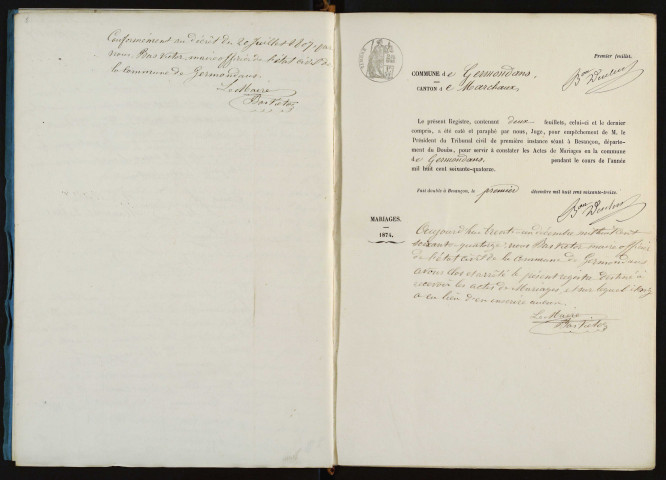 Conformément au décret du 20 juillet 1807
nous Bas Victor, maire officier de l'état civil de
la commune de Germondans.
Le Maire
Bas Victor
Premier feuillet.
COMMUNE de Germondans.
CANTON de Marchaux.
Le présent Registre, contenant deux feuillets, celui-ci et le dernier
compris, a été coté et paraphé par nous, Juge, pour empêchement de M. le
Président du Tribunal civil de première instance séant à Besançon, départe-
ment du Doubs, pour servir à constater les Actes de Mariages en la commune
de Germondans, pendant le cours de l'année
mil huit cent soixante-quatorze.
Fait double à Besançon, le premier décembre mil huit cent soixante-treize.
MARIAGES.
1874.
Aujourd'hui trente-un décembre mil huit cent
soixante-quatorze nous Bas Victor maire officier
de l'état civil de la commune de Germondans
avons clos et arrêté le présent registre destiné à
recevoir les actes de Mariages, et sur lequel il n'y
a eu lieu d'en inscrire aucun.
Le Maire
Bas Victor